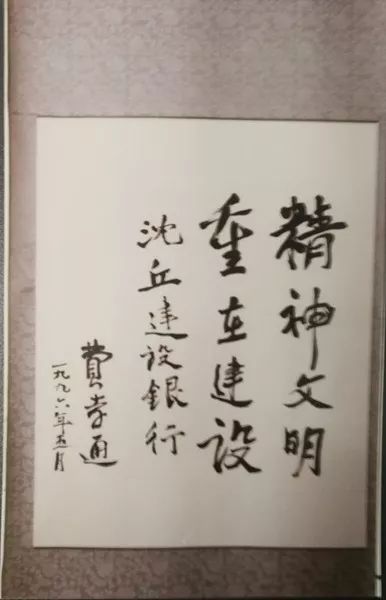 精神文明
重在建设
沈丘建设銀行
費孝通
一九九六年五月